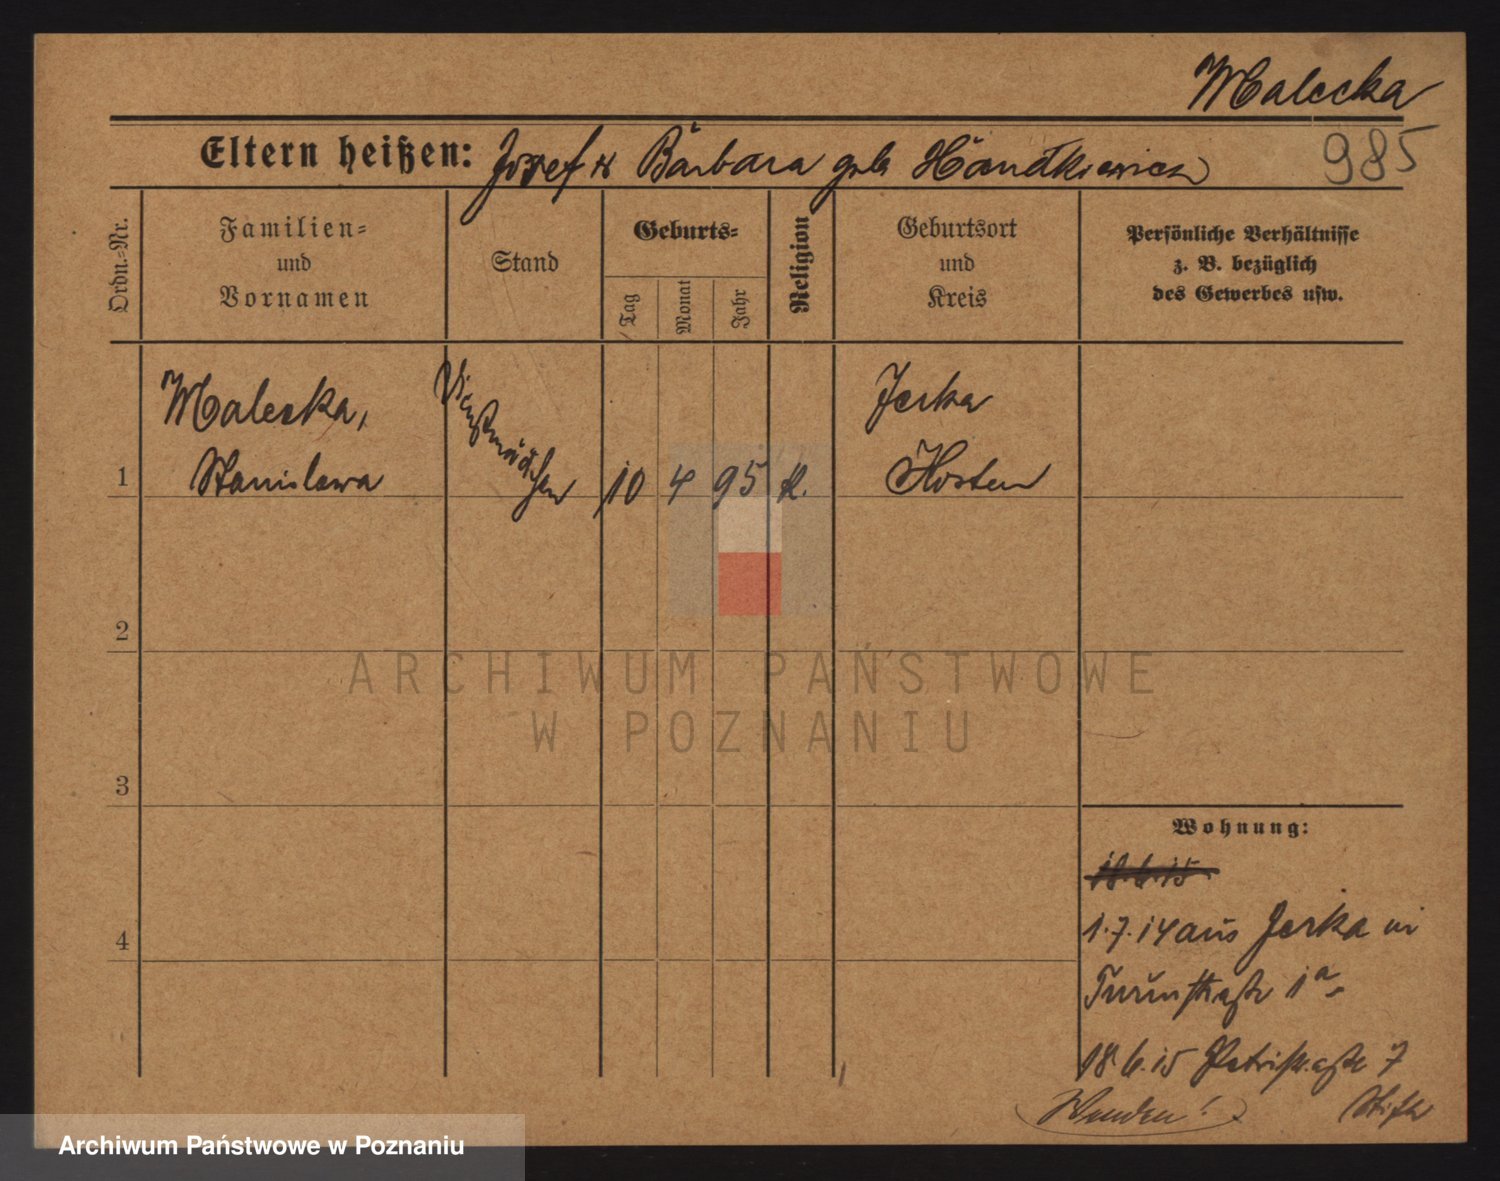 Malecka
Eltern heißen: Jozef u Barbara geb.
985
Ordn.-Nr.
Familien-
und
Vornamen
Stand
Geburts-
Tag
Monat
Jahr
Religion
Geburtsort
und
Kreis
Persönliche Verhältnisse
z. B. bezüglich
des Gewerbes usw.
1
Malecka,
Stanislawa
Dienstmädchen
10 4 95 k.
Jerka
Kosten
2
3
4
Wohnung:
18.6.15
1.7.14 aus Jerka in
Turmstraße 1a
18.6.15 Petristraße 7
Wenden!
ARCHIWUM PAŃSTWOWE
W POZNANIU
Archiwum Państwowe w Poznaniu